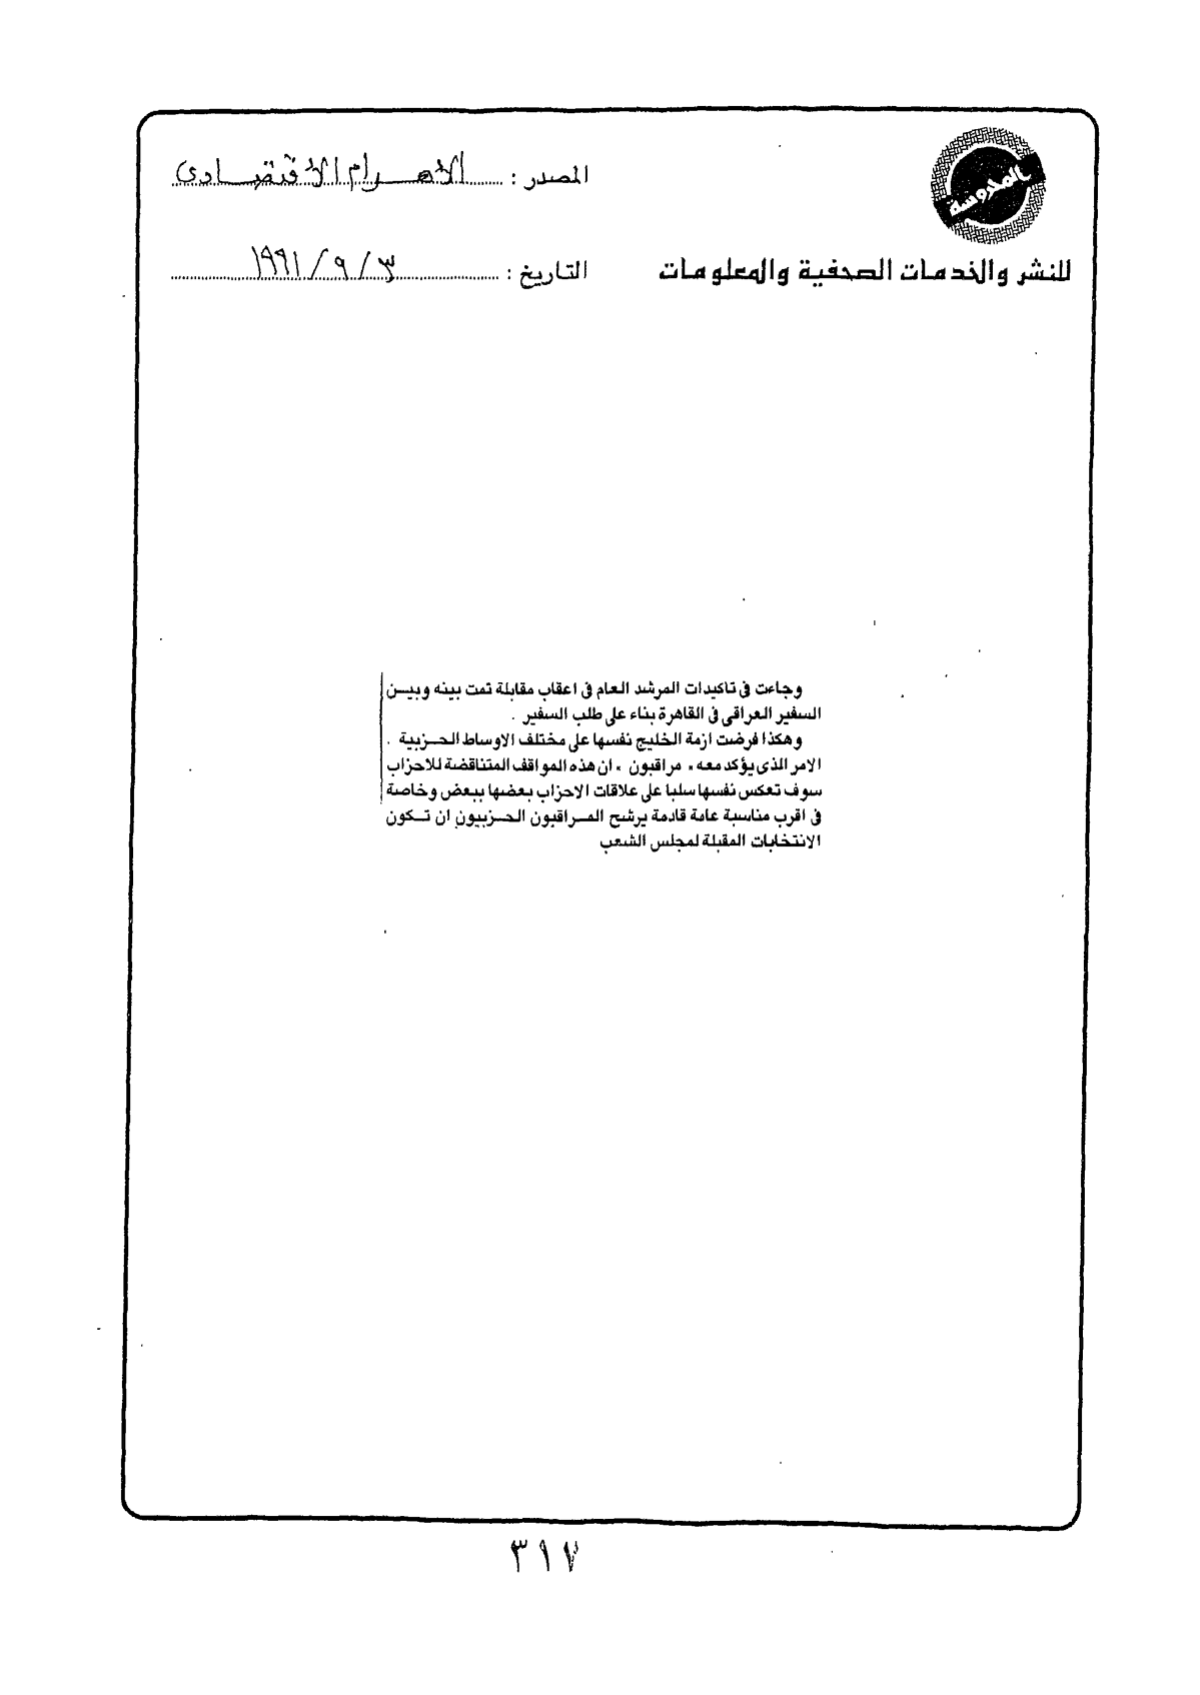 المحروسة
المصدر : الاهرام الاقتصادى
للنشر والخدمات الصحفية والمعلومات
التاريخ : ٣ / ٩ / ١٩٩١
وجاءت فى تاكيدات المرشد العام فى اعقاب مقابلة تمت بينه وبين
السفير العراقى فى القاهرة بناء على طلب السفير .
وهكذا فرضت ازمة الخليج نفسها على مختلف الاوساط الحزبية .
الامر الذى يؤكد معه « مراقبون » ان هذه المواقف المتناقضة للاحزاب
سوف تعكس نفسها سلبا على علاقات الاحزاب بعضها ببعض وخاصة
فى اقرب مناسبة عامة قادمة يرشح المراقبون الحزبيون ان تكون
الانتخابات المقبلة لمجلس الشعب
٣١٧